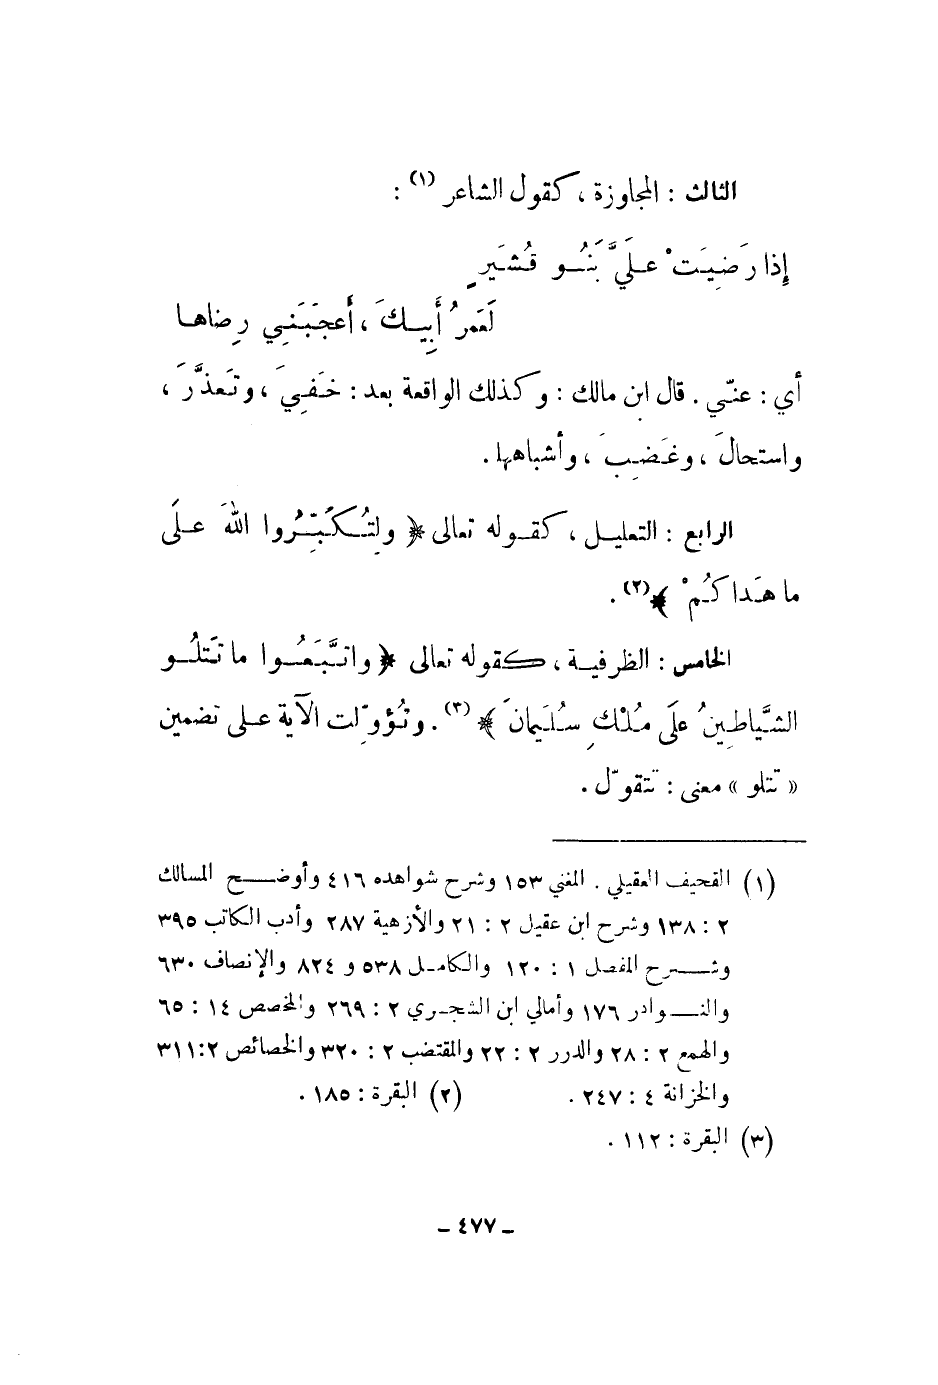 الثالث : المجاوزة ، كقول الشاعر (١) :
إِذا رَضِيَتْ عليَّ بَنُو قُشَيرٍ
لَعَمرُ أَبِيكَ ، أَعجَبَنِي رِضاها
أي : عنّي . قال ابن مالك : وكذلك الواقعة بعد : خَفِيَ ، وتَعذَّرَ ،
واستحالَ ، وغَضِبَ ، وأشباهها .
الرابع : التعليل ، كقوله تعالى ﴿ ولِتُكَبِّرُوا اللهَ علَى
ما هَداكُمْ ﴾ (٢) .
الخامس : الظرفية ، كقوله تعالى ﴿ واتَّبَعُوا ما تَتلُو
الشَّياطِينُ علَى مُلْكِ سُلَيمانَ ﴾ (٣) . وتُؤوِّلت الآية على تضمين
« تتلو » معنى : تتقوّل .
(١) القحيف العقيلي . المغني ١٥٣ وشرح شواهده ٤١٦ وأوضح المسالك
٢ : ١٣٨ وشرح ابن عقيل ٢ : ٢١ والأزهية ٢٨٧ وأدب الكاتب ٣٩٥
وشرح المفصل ١ : ١٢٠ والكامل ٥٣٨ و ٨٢٤ والإنصاف ٦٣٠
والنوادر ١٧٦ وأمالي ابن الشجري ٢ : ٢٦٩ والمخصص ١٤ : ٦٥
والهمع ٢ : ٢٨ والدرر ٢ : ٢٢ والمقتضب ٢ : ٣٢٠ والخصائص ٢:٣١١
والخزانة ٤ : ٢٤٧ . (٢) البقرة : ١٨٥ .
(٣) البقرة : ١١٢ .
ـ ٤٧٧ ـ